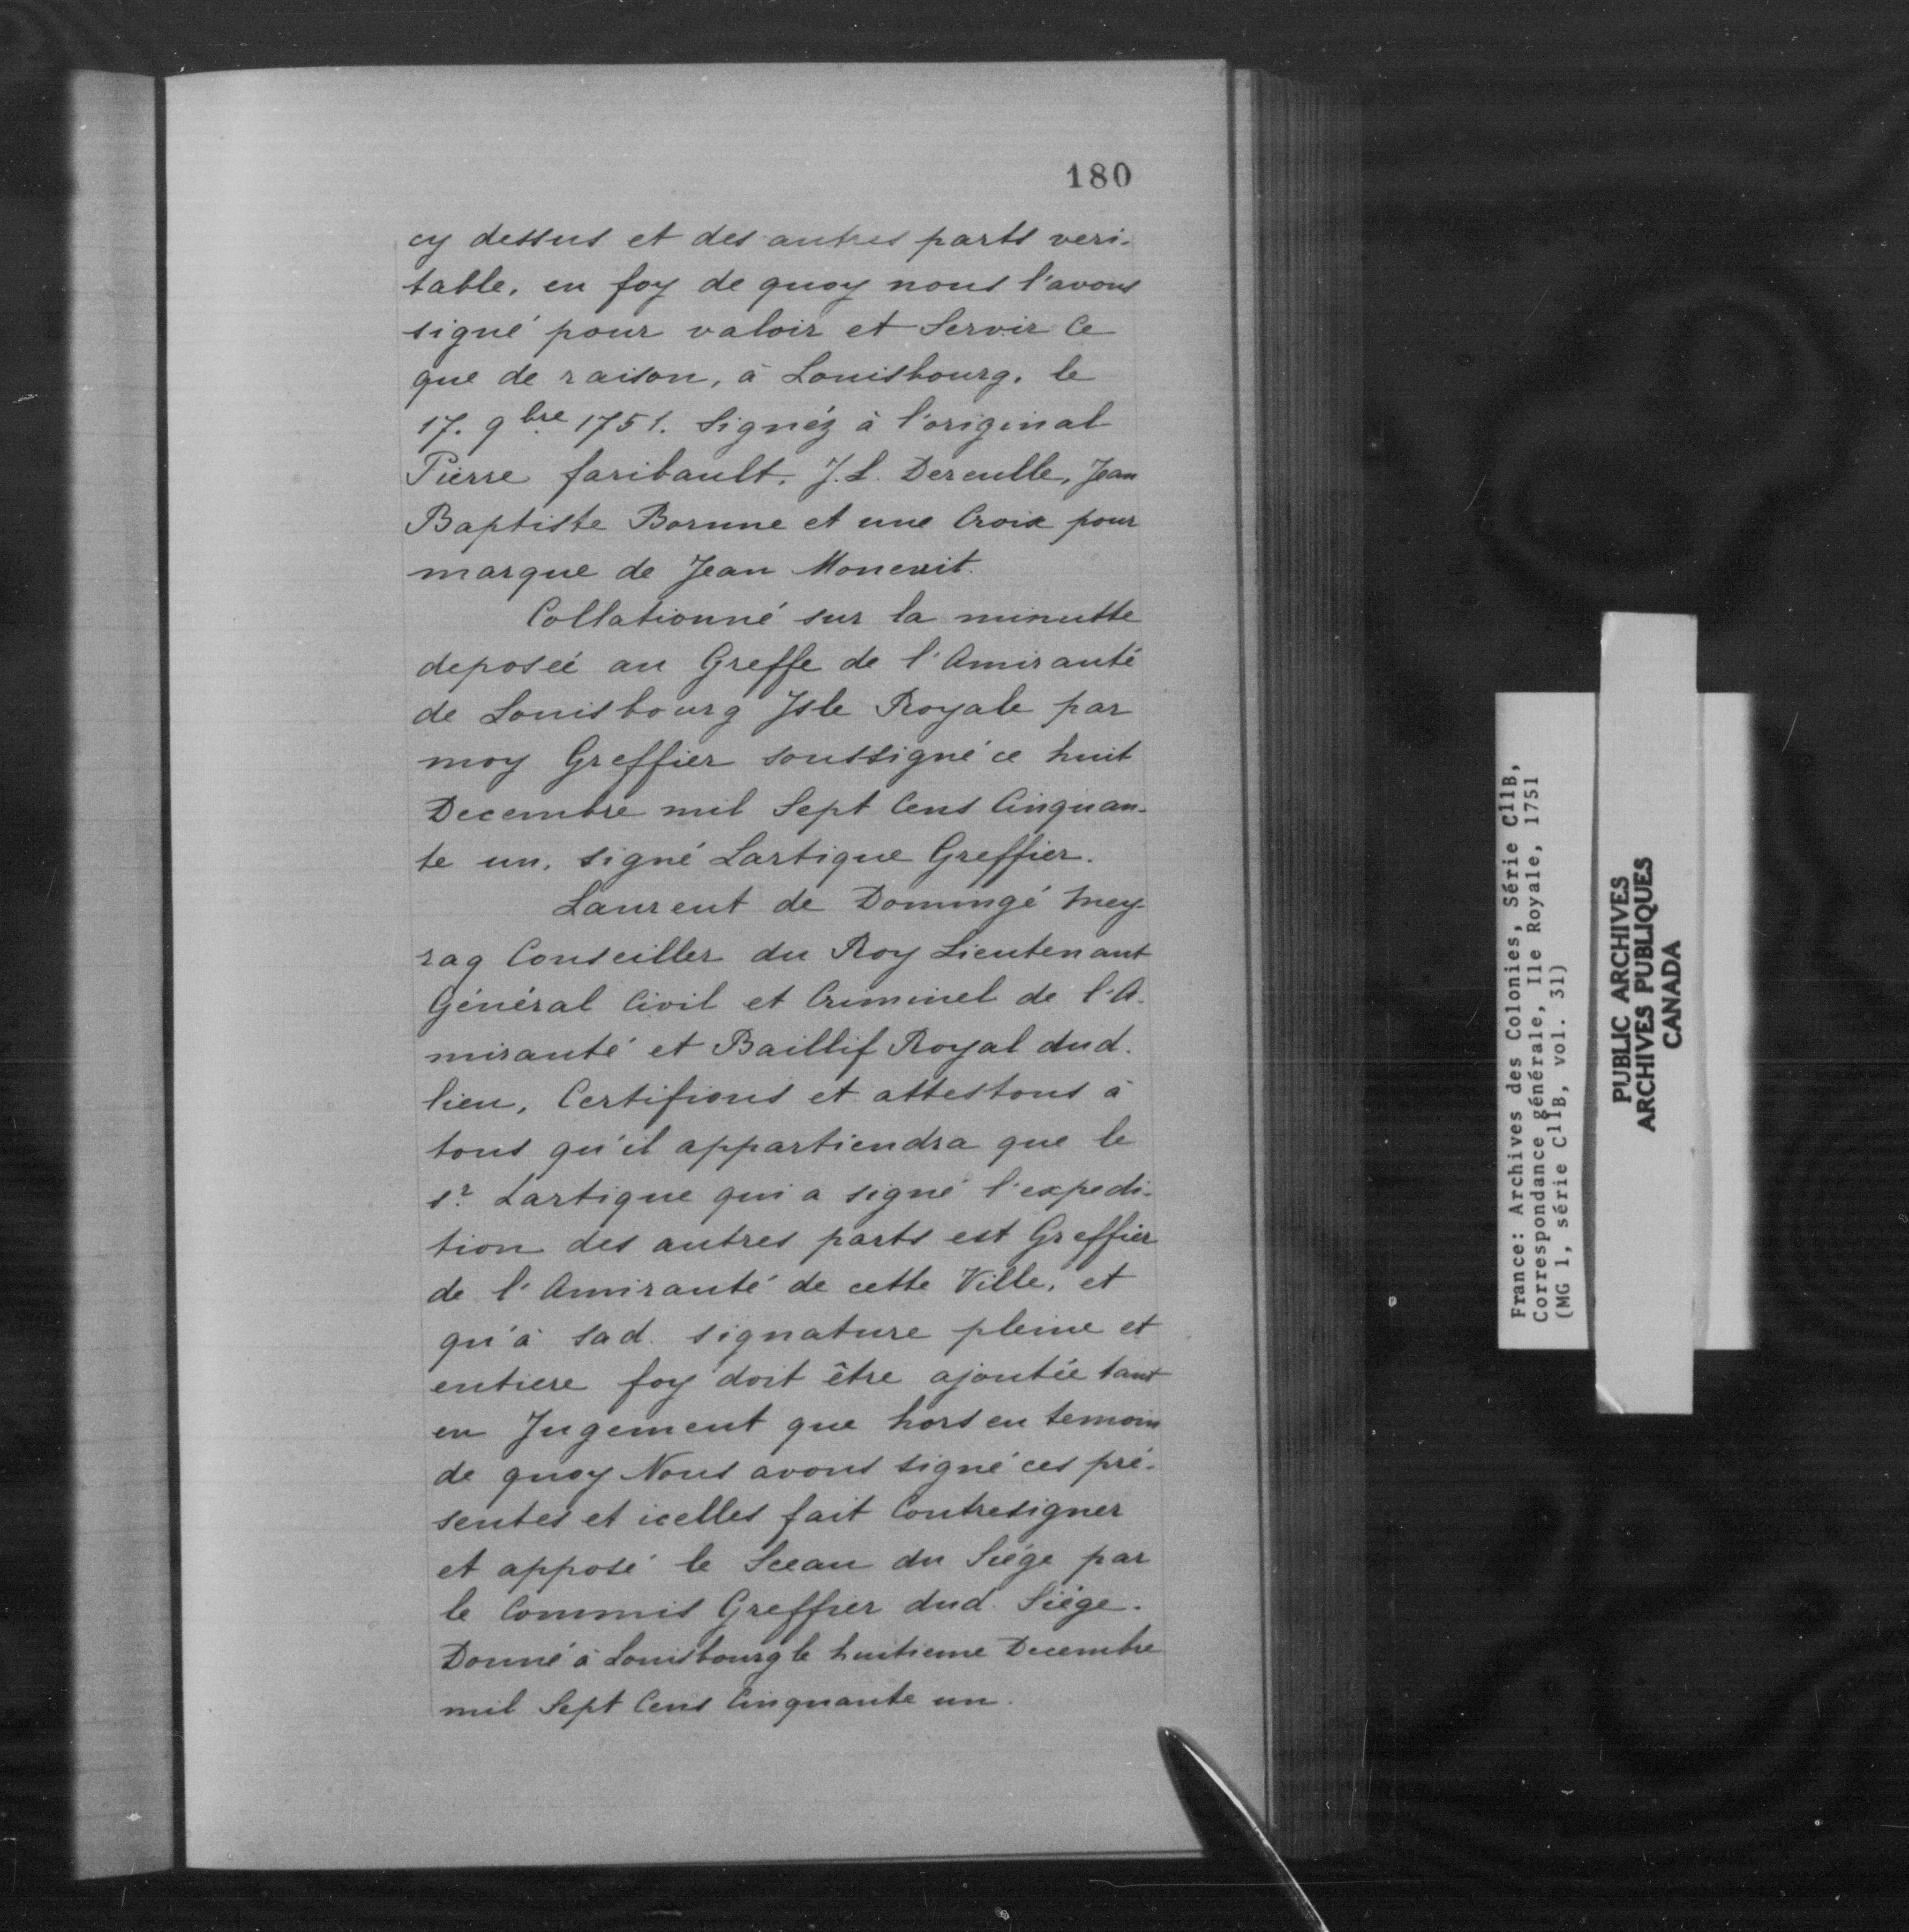 180
cy dessus et des autres parts veri-
table, en foy de quoy nous l'avons
signé pour valoir et Servir Ce
que de raison, à Louisbourg, le
17. 9bre 1751. Signéz à l'original
Pierre faribault, J. L. Dereulle, Jean
Baptiste Borune et une Croix pour
marque de Jean
Collationné sur la minutte
deposeé au Greffe de l'Amirauté
de Louisbourg Isle Royale par
moy Greffier soussigné ce huit
Decembre mil Sept Cens Cinquan-
te un, signé Lartigue Greffier.
Laurent de Domingé Mey-
rag Conseiller du Roy Lieutenant
Général Civil et Criminel de l'A-
mirauté et Baillif Royal dud.
lieu, Certifions et attestons à
tous qu'il appartiendra que le
sr. Lartigue qui a signé l'expedi-
tion des autres parts est Greffier
de l'Amirauté de cette Ville, et
qu'à sad. signature pleine et
entiere foy doit être ajoutée tant
en Jugement que hors en temoin
de quoy Nous avons signé ces pré-
sentes et icelles fait Contresigner
et apposé le Sceau du Siége par
le Commis Greffier dud. Siége.
Donné à Louisbourg le huitieme Decembre
mil Sept Cens Cinquante un.
France: Archives des Colonies, Série C11B,
Correspondance générale, Ile Royale, 1751
(MG 1, série C11B, vol. 31)
PUBLIC ARCHIVES
ARCHIVES PUBLIQUES
CANADA